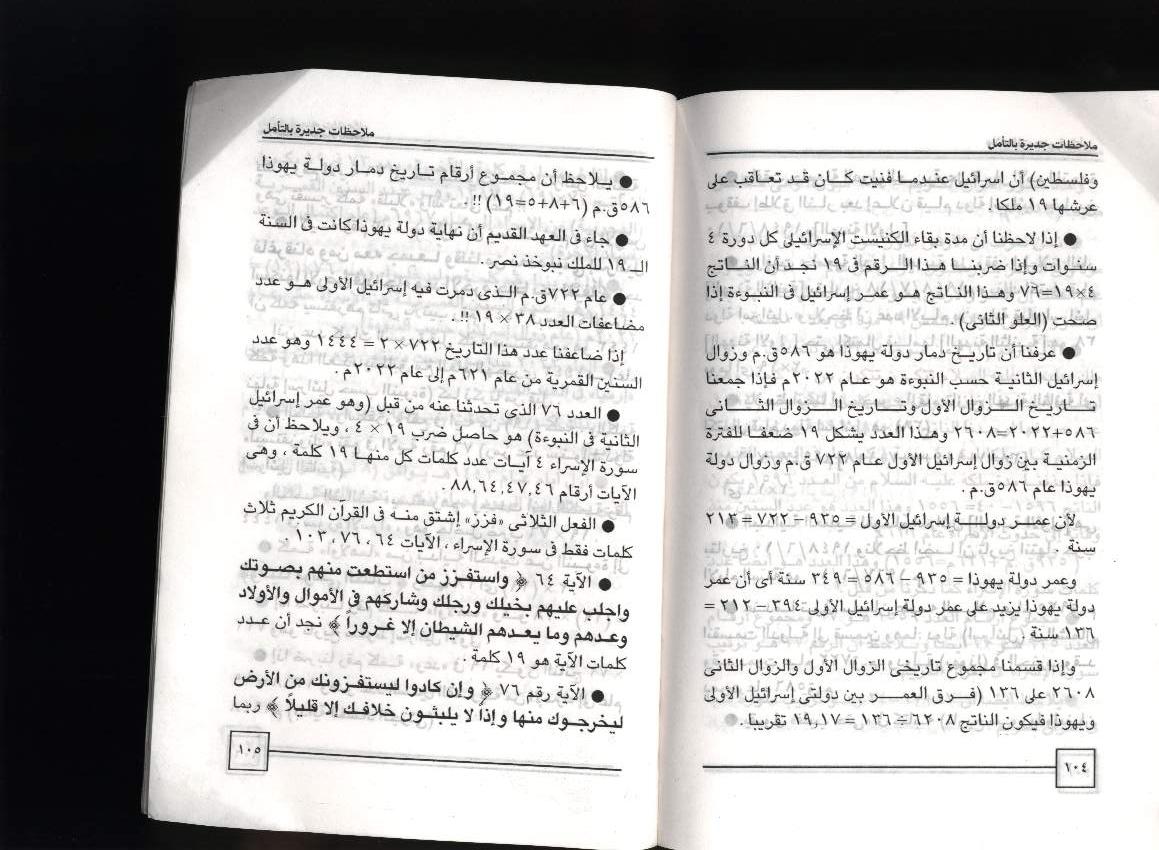 ملاحظات جديرة بالتأمل
وفلسطين) أن اسرائيل عندما فنيت كان قد تعاقب على
عرشها ١٩ ملكا .
● إذا لاحظنا أن مدة بقاء الكنيست الإسرائيلى كل دورة ٤
سنوات وإذا ضربنا هذا الرقم فى ١٩ نجد أن الناتج
٤×١٩=٧٦ وهذا الناتج هو عمر إسرائيل فى النبوءة إذا
صحت (العلو الثانى) .
● عرفنا أن تاريخ دمار دولة يهوذا هو ٥٨٦ق.م وزوال
إسرائيل الثانية حسب النبوءة هو عام ٢٠٢٢م فإذا جمعنا
تاريخ الزوال الأول وتاريخ الزوال الثانى
٥٨٦+٢٠٢٢=٢٦٠٨ وهذا العدد يشكل ١٩ ضعفا للفترة
الزمنية بين زوال إسرائيل الأول عام ٧٢٢ ق.م وزوال دولة
يهوذا عام ٥٨٦ق.م .
لأن عمر دولة إسرائيل الأول = ٩٣٥ – ٧٢٢ = ٢١٣
سنة .
وعمر دولة يهوذا = ٩٣٥ – ٥٨٦ = ٣٤٩ سنة أى أن عمر
دولة يهوذا يزيد على عمر دولة إسرائيل الأولى ٣٩٤ – ٢١٢ =
١٣٦ سنة .
وإذا قسمنا مجموع تاريخى الزوال الأول والزوال الثانى
٢٦٠٨ على ١٣٦ (فرق العمر بين دولتى إسرائيل الأولى
ويهوذا فيكون الناتج ٦٢٠٨ ÷ ١٣٦ = ١٩,١٧ تقريبا .
١٠٤
ملاحظات جديرة بالتأمل
● يلاحظ أن مجموع أرقام تاريخ دمار دولة يهوذا
٥٨٦ق.م (٦+٨+٥=١٩) !! .
● جاء فى العهد القديم أن نهاية دولة يهوذا كانت فى السنة
الـ ١٩ للملك نبوخذ نصر .
● عام ٧٢٢ق.م الذى دمرت فيه إسرائيل الأولى هو عدد
مضاعفات العدد ٣٨ × ١٩ !! .
إذا ضاعفنا عدد هذا التاريخ ٧٢٢ × ٢ = ١٤٤٤ وهو عدد
السنين القمرية من عام ٦٢١م إلى عام ٢٠٢٢م .
● العدد ٧٦ الذى تحدثنا عنه من قبل (وهو عمر إسرائيل
الثانية فى النبوءة) هو حاصل ضرب ١٩ × ٤ ، ويلاحظ أن فى
سورة الإسراء ٤ آيات عدد كلمات كل منها ١٩ كلمة ، وهى
الآيات أرقام ٨٨,٦٤,٤٧,٤٦ .
● الفعل الثلاثى «فزز» إشتق منه فى القرآن الكريم ثلاث
كلمات فقط فى سورة الإسراء ، الآيات ٦٤ ، ٧٦ ، ١٠٣ .
● الآية ٦٤ ﴿ واستفزز من استطعت منهم بصوتك
واجلب عليهم بخيلك ورجلك وشاركهم في الأموال والأولاد
وعدهم وما يعدهم الشيطان إلا غروراً ﴾ نجد أن عدد
كلمات الآية هو ١٩ كلمة .
● الآية رقم ٧٦ ﴿ وإن كادوا ليستفزونك من الأرض
ليخرجوك منها وإذا لا يلبثون خلافك إلا قليلاً ﴾ ربما
١٠٥